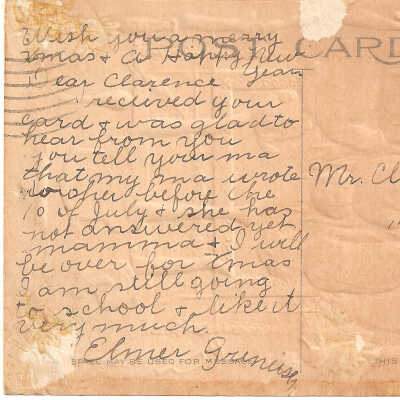 Wish you a merry
xmas & a Happy New
Year
POST CARD
Dear Clarence
I recieved your
card & was glad to
hear from you
you tell your ma
that my ma wrote
to her before the
10 of July & she has
not answered yet
mamma & I will
be over for Xmas
I am still going
to school & like it
very much.
Elmer
Mr. Cl
SPACE MAY BE USED FOR MESSAGE
THIS